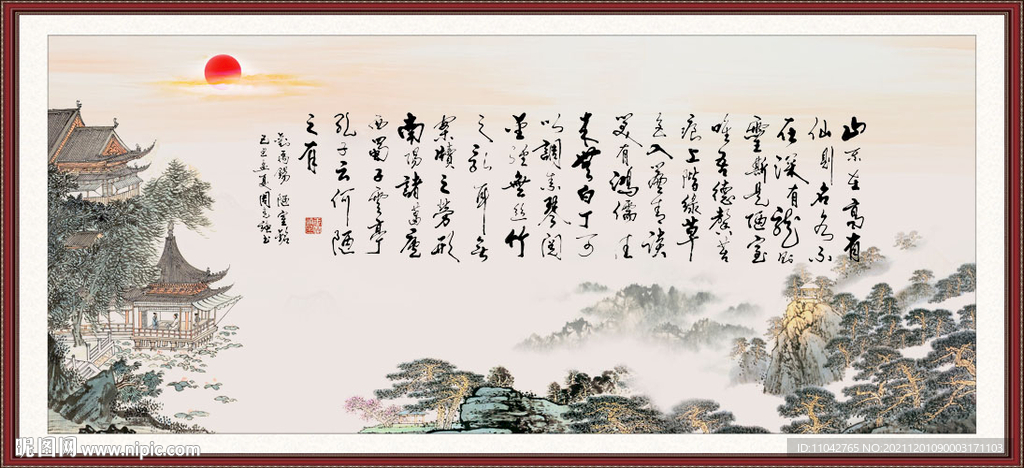 山不在高有
仙則名水不
在深有龍則
靈斯是陋室
唯吾德馨苔
痕上階綠草
色入簾青談
笑有鴻儒往
來無白丁可
以調素琴閱
金經無絲竹
之亂耳無
案牘之勞形
南陽諸葛廬
西蜀子雲亭
孔子云何陋
之有
劉禹錫 陋室銘
昵图网 www.nipic.com
ID:11042765 NO:20211201090003171103